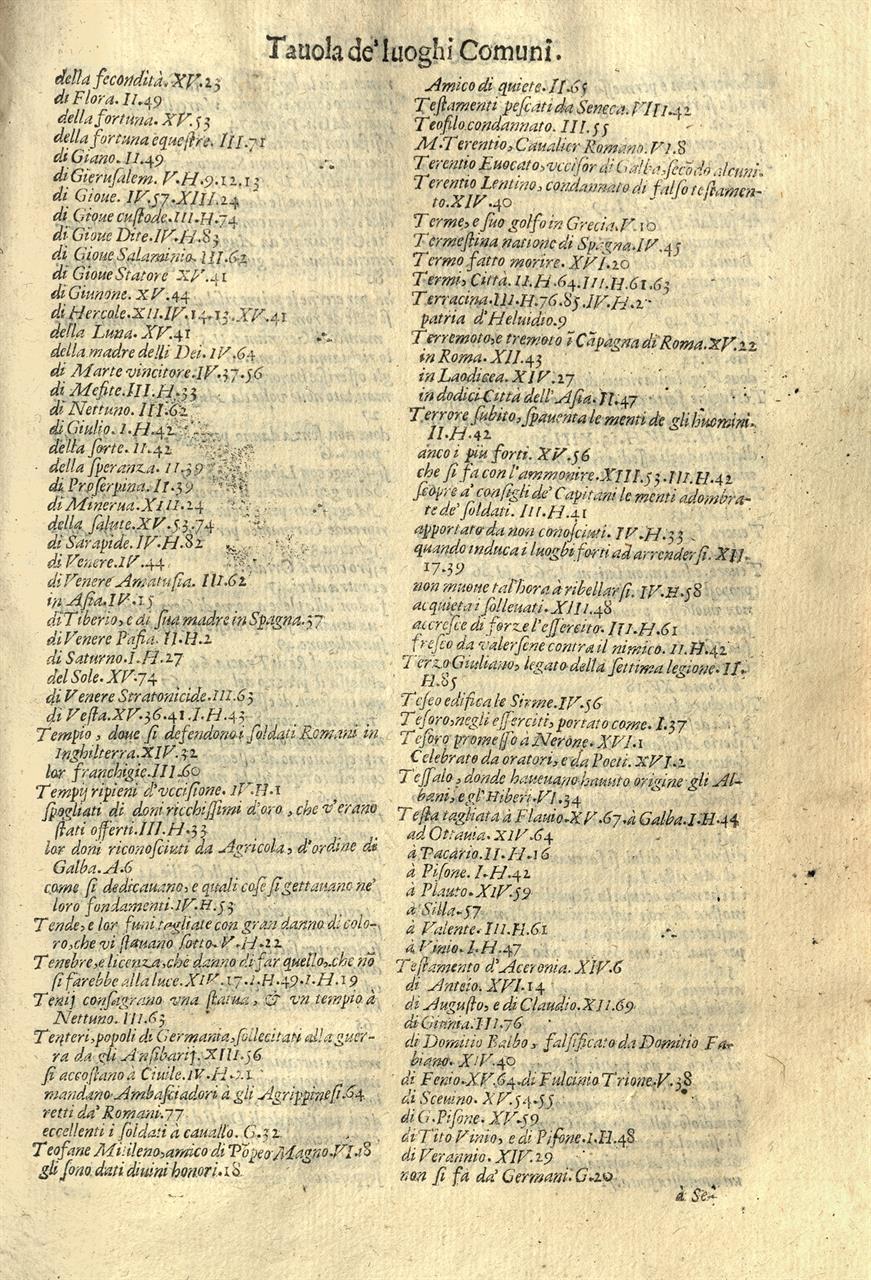 Tauola de' luoghi Comuni.
della fecondità. XV.23
di Flora. II.49
della fortuna. XV.53
della fortuna equeſtre. III.71
di Giano. II.49
di Gieruſalem. V.H.9.12.13
di Gioue. IV.57.XIII.24
di Gioue cuſtode.III.H.74
di Gioue Dite.IV.H.83
di Gioue Salaminio. III.62
di Gioue Statore XV.41
di Giunone. XV.44
di Hercole.XII.IV.14.13.XV.41
della Luna. XV.41
della madre delli Dei. IV.64
di Marte vincitore.IV.37.56
di Mefite.III.H.33
di Nettuno. III.62
di Giulio. I.H.42
della ſorte. II.42
della ſperanza. II.39
di Proſerpina. II.39
di Minerua. XIII.24
della ſalute.XV.53.74
di Sarapide.IV.H.82
di Venere.IV.44
di Venere Amatuſia. III.62
in Aſia.IV.15
di Tiberio, e di ſua madre in Spagna.37
di Venere Pafia. II.H.2
di Saturno.I.H.27
del Sole. XV.74
di Venere Stratonicide.III.63
di Veſta.XV.36.41.I.H.43
Tempio, doue ſi defendono i ſoldati Romani in
Inghilterra.XIV.32
lor franchigie.III.60
Tempij ripieni d'vcciſione. IV.H.1
ſpogliati di doni ricchiſſimi d'oro, che v'erano
ſtati offerti.III.H.33
lor doni riconoſciuti da Agricola, d'ordine di
Galba. A.6
come ſi dedicauano, e quali coſe ſi gettauano ne'
loro fondamenti.IV.H.53
Tende, e lor funi tagliate con gran danno di colo-
ro, che vi ſtauano ſotto. V.H.22
Tenebre, e licenza, che danno di far quello, che nõ
ſi farebbe alla luce. XIV.17.I.H.49.I.H.19
Tenij conſagrano vna ſtatua, & vn tempio à
Nettuno. III.63
Tenteri, popoli di Germania, ſollecitati alla guer-
ra da gli Anſibarij. XIII.56
ſi accoſtano à Ciuile.IV.H.21
mandano Ambaſciadori à gli Agrippineſi.64
retti da' Romani.77
eccellenti i ſoldati à cauallo. G.32
Teofane Mitileno, amico di Põpeo Magno.VI.18
gli ſono dati diuini honori.18
Amico di quiete. II.65
Teſtamenti peſcati da Seneca. VIII.42
Teofilo condannato. III.55
M.Terentio, Caualier Romano. VI.8
Terentio Euocato, vcciſor di Galba, ſecõdo alcuni.
Terentio Lentino, condannato di falſo teſtamen-
to.XIV.40
Terme, e ſuo golfo in Grecia.V.10
Termeſtina natione di Spagna.IV.45
Termo fatto morire. XVI.20
Termi, Città. II.H.64.III.H.61.63
Terracina.III.H.76.85.IV.H.2
patria d'Heluidio.9
Terremoto, e tremoto ĩ Cãpagna di Roma.XV.22
in Roma. XII.43
in Laodicea. XIV.27
in dodici Città dell'Aſia.II.47
Terrore ſubito, ſpauenta le menti de gli huomini.
II.H.42
anco i più forti. XV.56
che ſi fa con l'ammonire. XIII.53.III.H.42
ſcopre a' conſigli de' Capitani le menti adombra-
te de' ſoldati. III.H.41
apportato da non conoſciuti. IV.H.33
quando induca i luoghi forti ad arrenderſi. XII.
17.39
non muoue tal'hora à ribellarſi. IV.H.58
acquieta i ſolleuati. XIII.48
accreſce di forze l'eſſercito. III.H.61
freſco da valerſene contra il nimico. II.H.42
Terzo Giuliano, legato della ſettima legione. II.
H.85
Teſeo edifica le Sirme.IV.56
Teſoro, negli eſſerciti, portato come. I.37
Teſoro promeſſo à Nerone. XVI.1
Celebrato da oratori, e da Poeti. XVI.2
Teſſalo, donde haueuano hauuto origine gli Al-
bani, e gl'Hiberi.VI.34
Teſta tagliata à Flauio.XV.67.à Galba.I.H.44
ad Ottauia. XIV.64
à Pacario.II.H.16
à Piſone. I.H.42
à Plauto.XIV.59
à Silla.57
à Valente. III.H.61
à Vinio. I.H.47
Teſtamento d'Aceronia. XIV.6
di Anteio. XVI.14
di Auguſto, e di Claudio.XII.69
di Giunia.III.76
di Domitio Balbo, falſificato da Domitio Fa-
biano. XIV.40
di Fenio.XV.64.di Fulcinio Trione.V.38
di Sceuino. XV.54.55
di G.Piſone. XV.59
di Tito Vinio, e di Piſone.I.H.48
di Verannio. XIV.29
non ſi fa da' Germani. G.20
à Se-